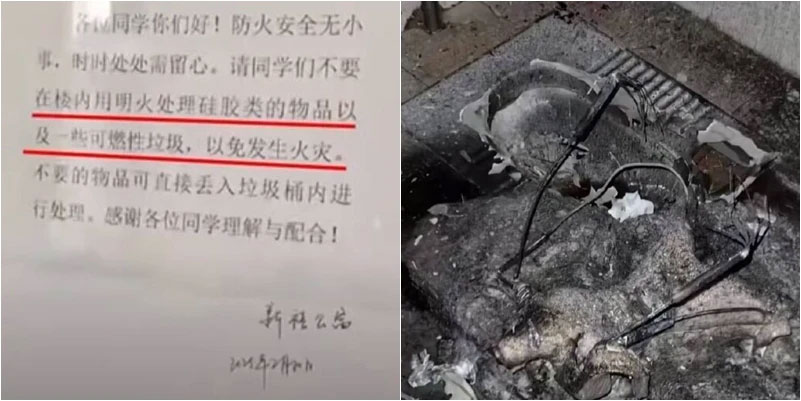 各位同学你们好！防火安全无小
事，时时处处需留心。请同学们不要
在楼内用明火处理硅胶类的物品以
及一些可燃性垃圾，以免发生火灾。
不要的物品可直接丢入垃圾桶内进
行处理。感谢各位同学理解与配合！